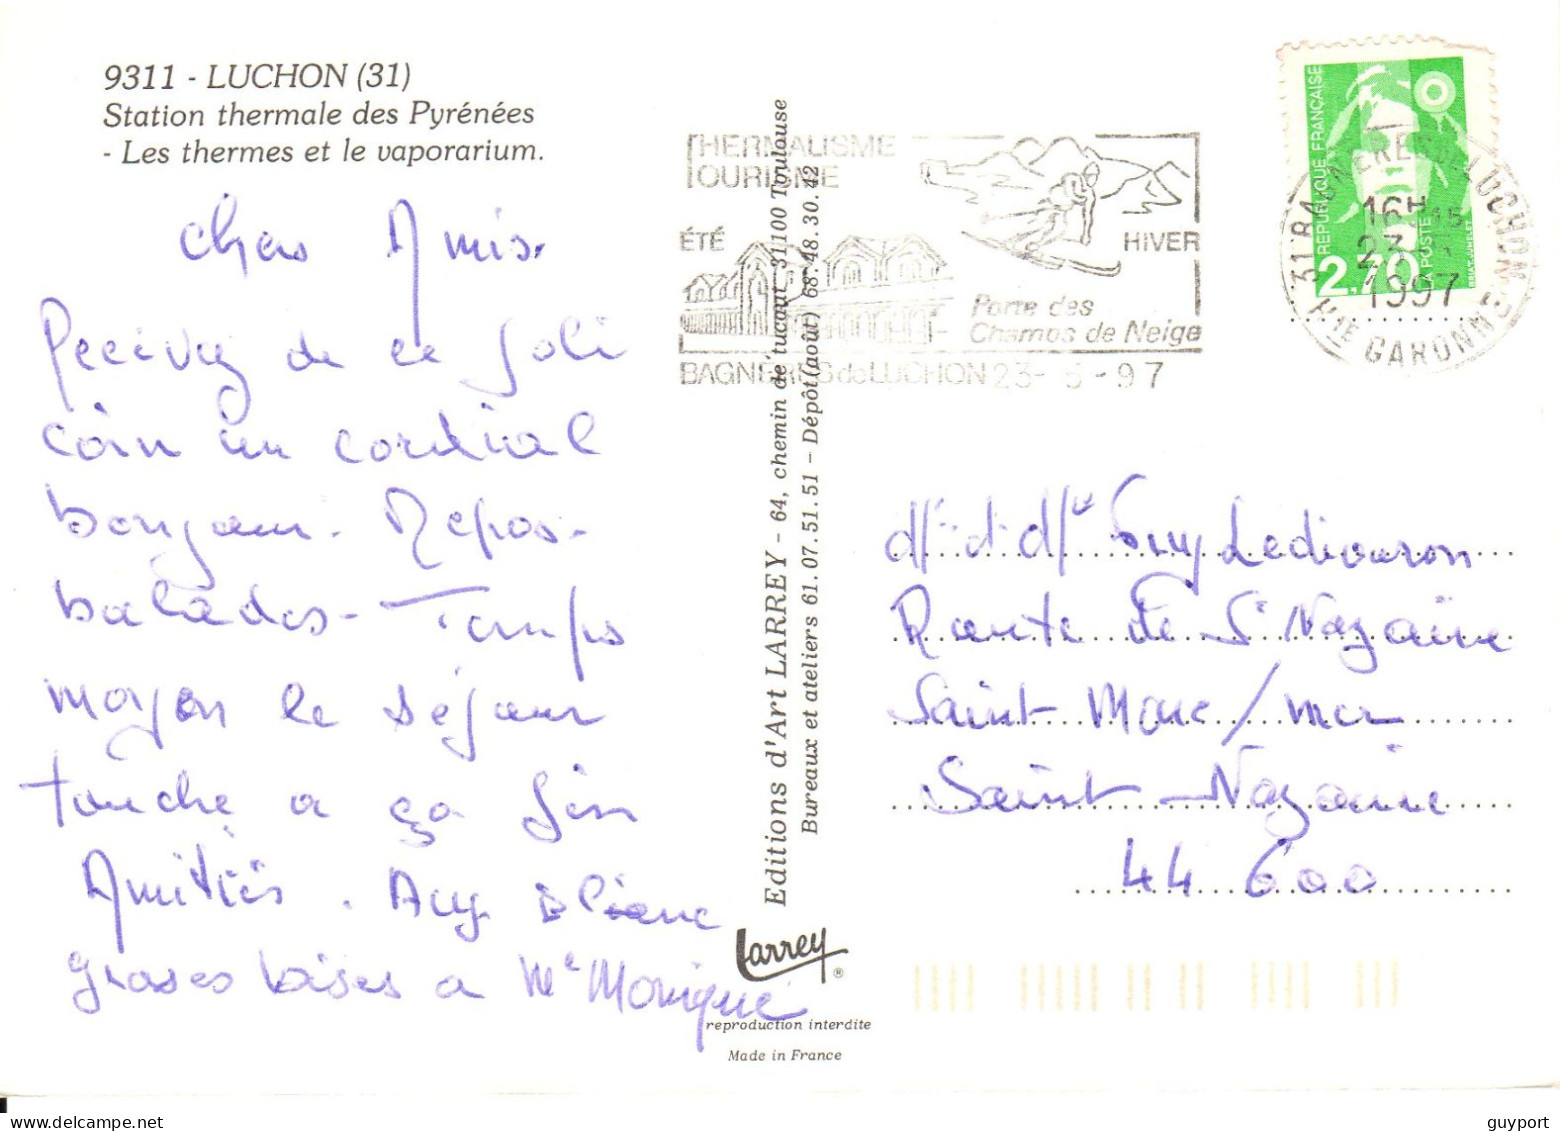 9311 - LUCHON (31)
Station thermale des Pyrénées
- Les thermes et le vaporarium.
Chers Amis.
Recevez de ce joli
coin un cordial
bonjour - Repos -
balades - Temps
moyen le séjour
touche a ça fin
Amitiés.
grosses bises a Me Monique
Editions d'Art LARREY - 64, chemin de tucaut 31100 Toulouse
Bureaux et ateliers 61.07.51.51 - Dépôt (août) 68.48.30.42
larrey ®
reproduction interdite
Made in France
THERMALISME
TOURISME
ÉTÉ
HIVER
Porte des
Champs de Neige
BAGNÈRES de LUCHON 23- 5 -97
RÉPUBLIQUE FRANÇAISE
2,70
LA POSTE
31 BAGNÈRES DE LUCHON
16H 45
23
1997
HTE GARONNE
Guy Lediouron
Route de St Nazaire
Saint Marc / mer
Saint-Nazaire
44 600
guyport